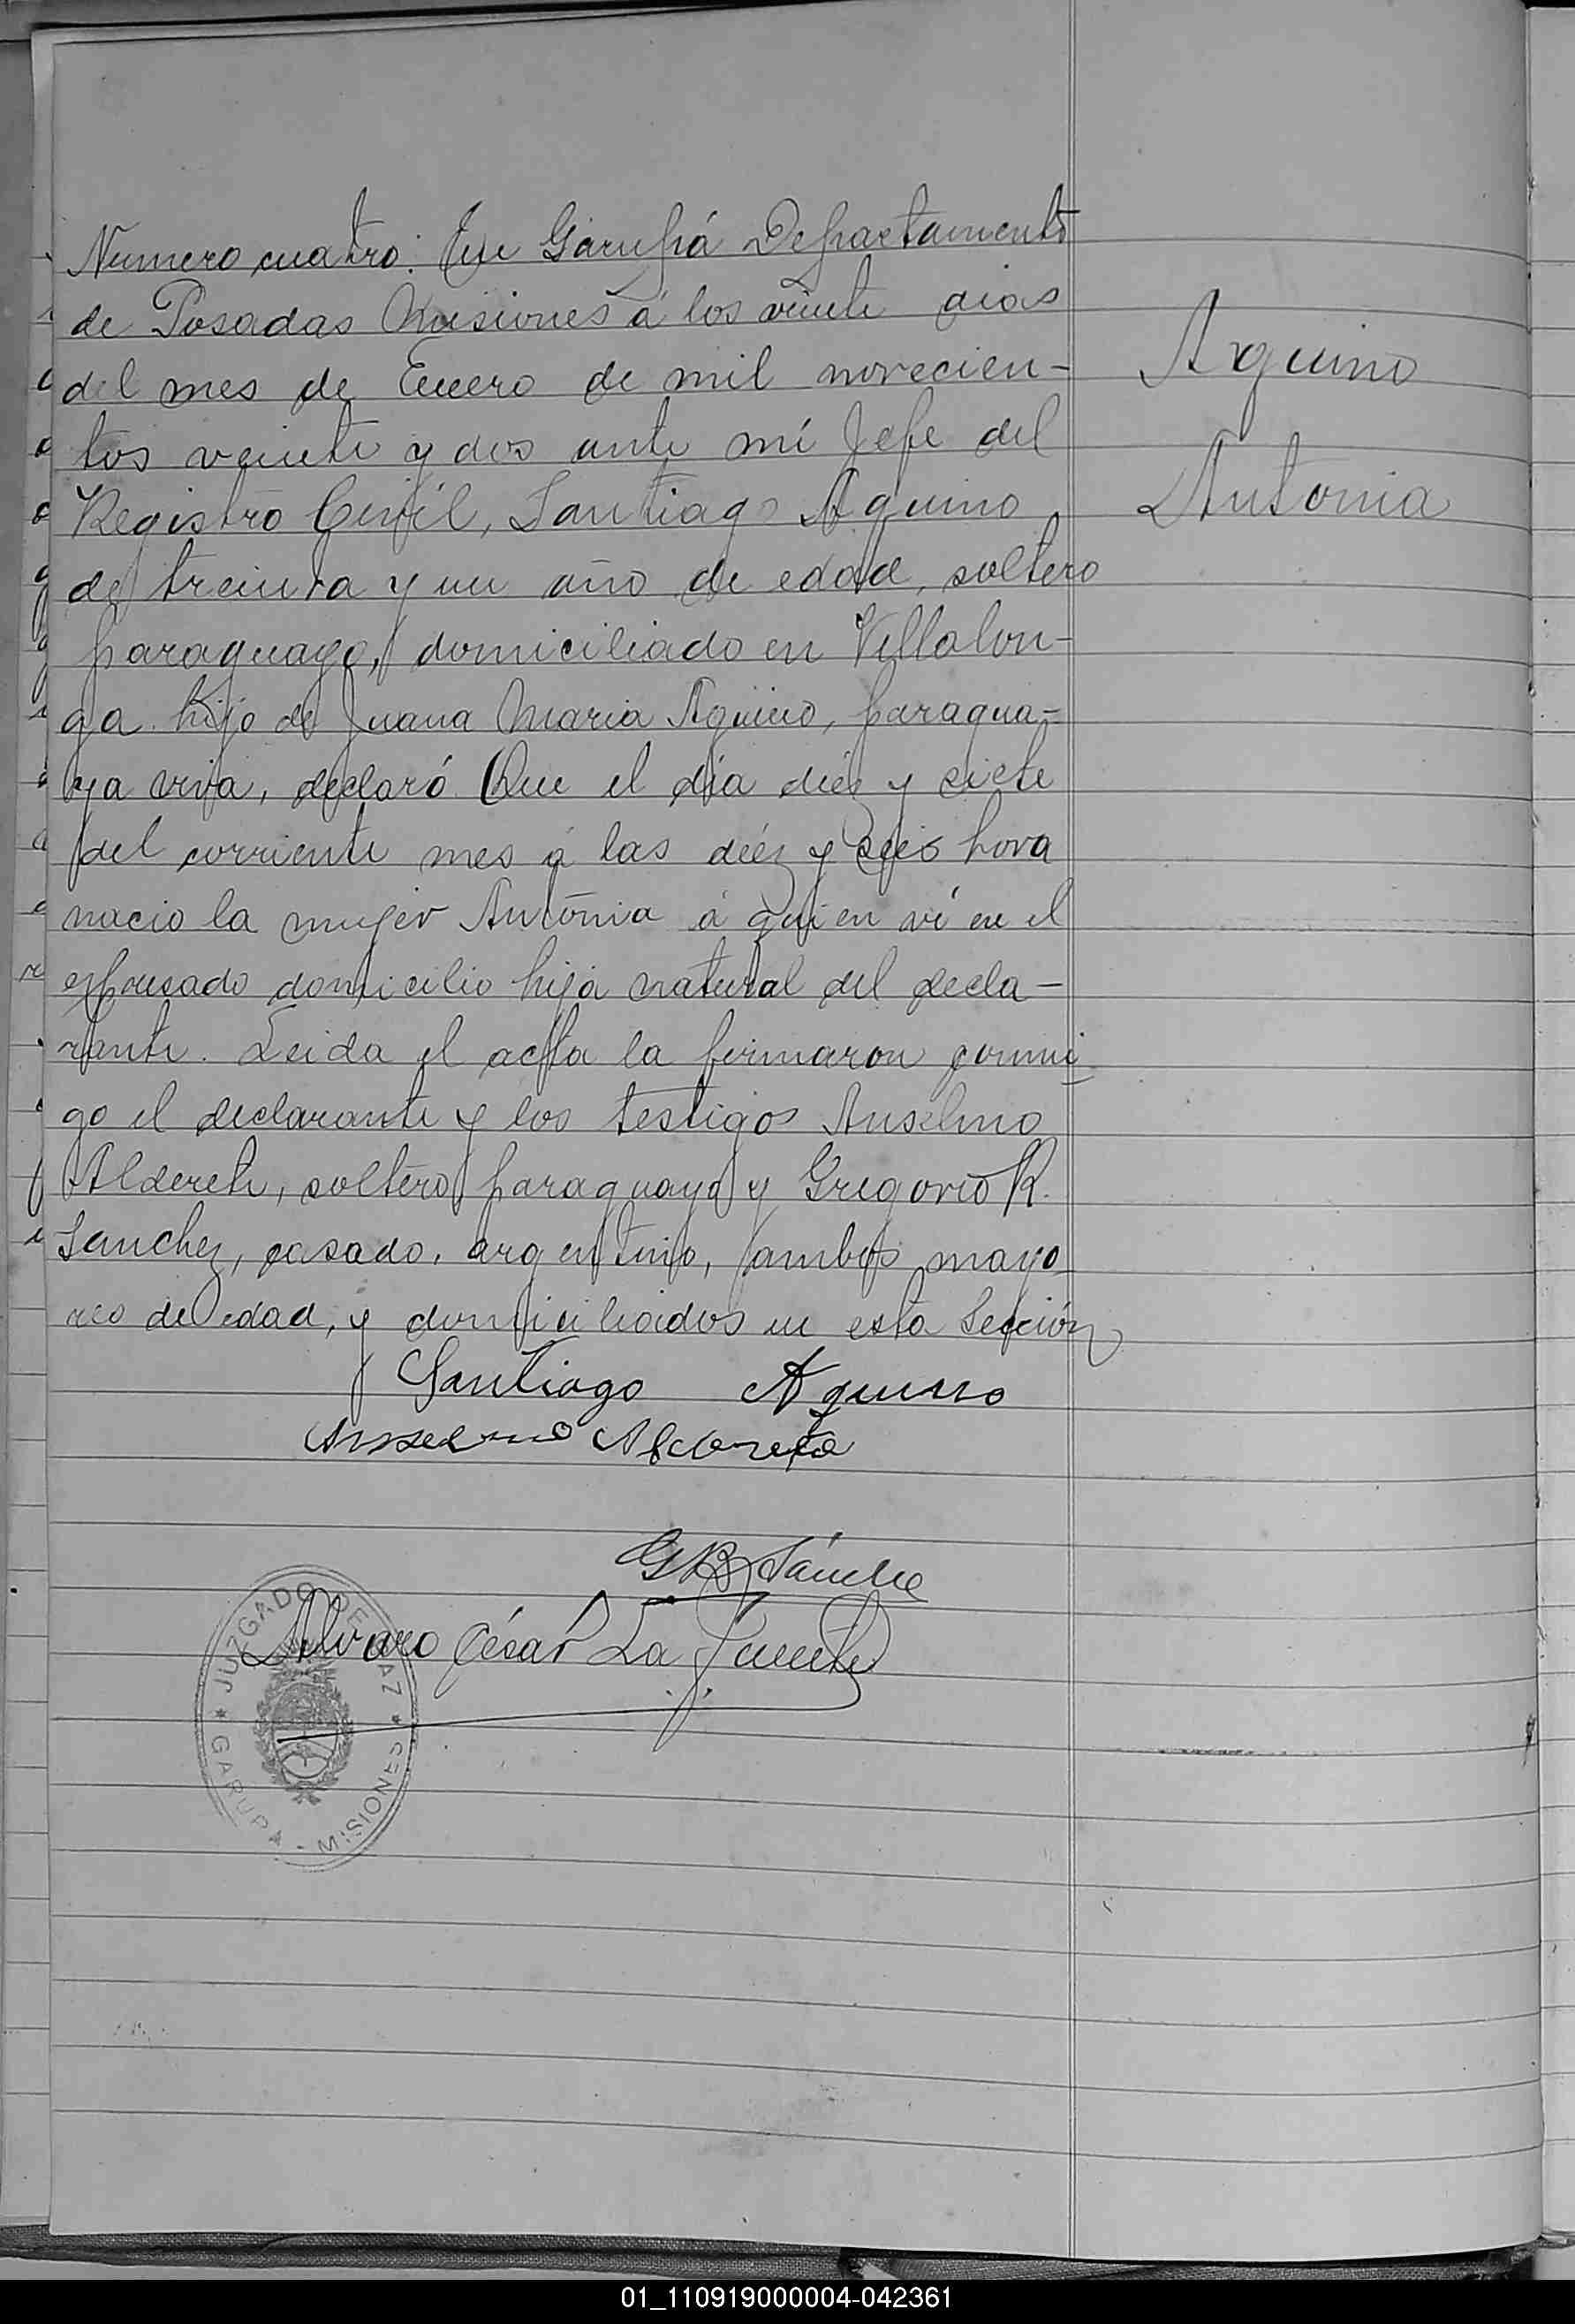 Numero cuatro: En Garupá Departamento
de Posadas Misiones á los veinte dias
del mes de Enero de mil novecien-
tos veinte y dos ante mí Jefe del
Registro Civil, Santiago Aquino
de treinta y un año de edad, soltero
paraguayo, domiciliado en Villalon-
ga hijo de Juana Maria Aquino, paragua-
ya viva, declaró Que el día diéz y siete
del corriente mes á las diéz y seis hora
nacio la mujer Antonia á quien ví en el
expresado domicilio hija natural del decla-
rante. Leida el acta la firmaron conmi
go el declarante y los testigos Anselmo
Alderete, soltero paraguayo y Gregorio R.
Sanchez, casado, argentino, ambos mayo
res de edad, y domiciliados en esta Sección
Aquino
Antonia
Santiago Aquino
Anselmo Alderete
GR Sánche
Alvaro César La Fuente
JUZGADO DE PAZ * MISIONES - GARUPA *
01_110919000004-042361